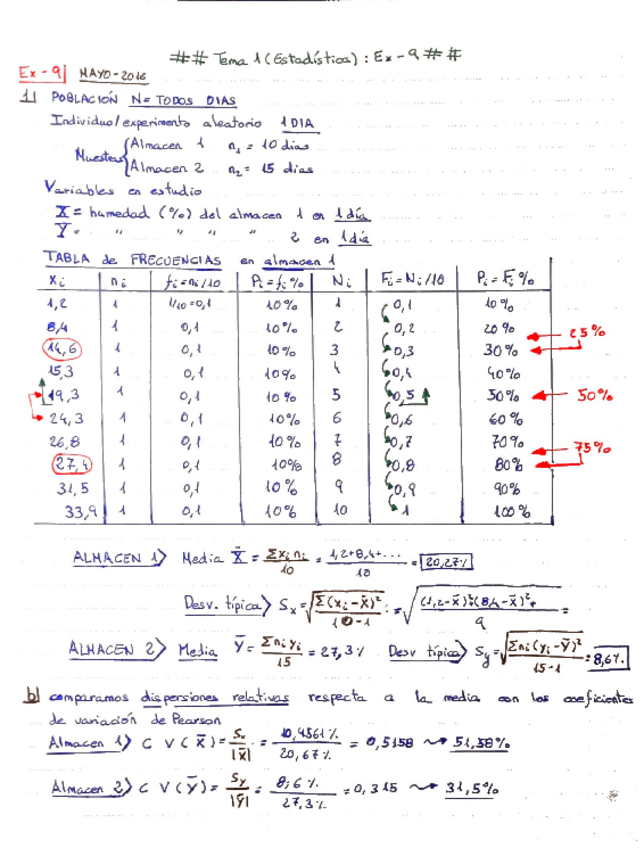 ## Tema 1 (Estadística) : Ex-9 ##
Ex-9| MAYO-2016
1| POBLACIÓN N= TODOS DIAS
Individuo/experimento aleatorio 1 DIA
Muestras { Almacen 1 n₁ = 10 dias
Almacen 2 n₂ = 15 dias
Variables en estudio
X = humedad (%) del almacen 1 en 1 día
Y = " " " " 2 en 1 día
TABLA de FRECUENCIAS en almacen 1
xi ni fi=ni/10 Pi=fi% Ni Fi=Ni/10 Pi=Fi%
1,2 1 1/10=0,1 10% 1 0,1 10%
8,4 1 0,1 10% 2 0,2 20%
25%
14,6 1 0,1 10% 3 0,3 30%
15,3 1 0,1 10% 4 0,4 40%
19,3 1 0,1 10% 5 0,5 50% 50%
24,3 1 0,1 10% 6 0,6 60%
26,8 1 0,1 10% 7 0,7 70%
75%
27,4 1 0,1 10% 8 0,8 80%
31,5 1 0,1 10% 9 0,9 90%
33,9 1 0,1 10% 10 1 100%
ALMACEN 1) Media X̄ = Σxi ni / 10 = 1,2+8,4+... / 10 = 20,27%
Desv. típica) Sx = √(Σ(xi-X̄)² / 10-1) = √((1,2-X̄)²+(8,4-X̄)²+ / 9) =
ALMACEN 2) Media Ȳ = Σni yi / 15 = 27,3% Desv típica) Sy = √(Σni(yi-Ȳ)² / 15-1) = 8,6%.
b) comparamos dispersiones relativas respecta a la media con los coeficientes
de variación de Pearson
Almacen 1) C V (X̄) = Sx / |X̄| = 10,4561% / 20,67% = 0,5158 ⤳ 51,58%
Almacen 2) C V (Ȳ) = Sy / |Ȳ| = 8,6% / 27,3% = 0,315 ⤳ 31,5%